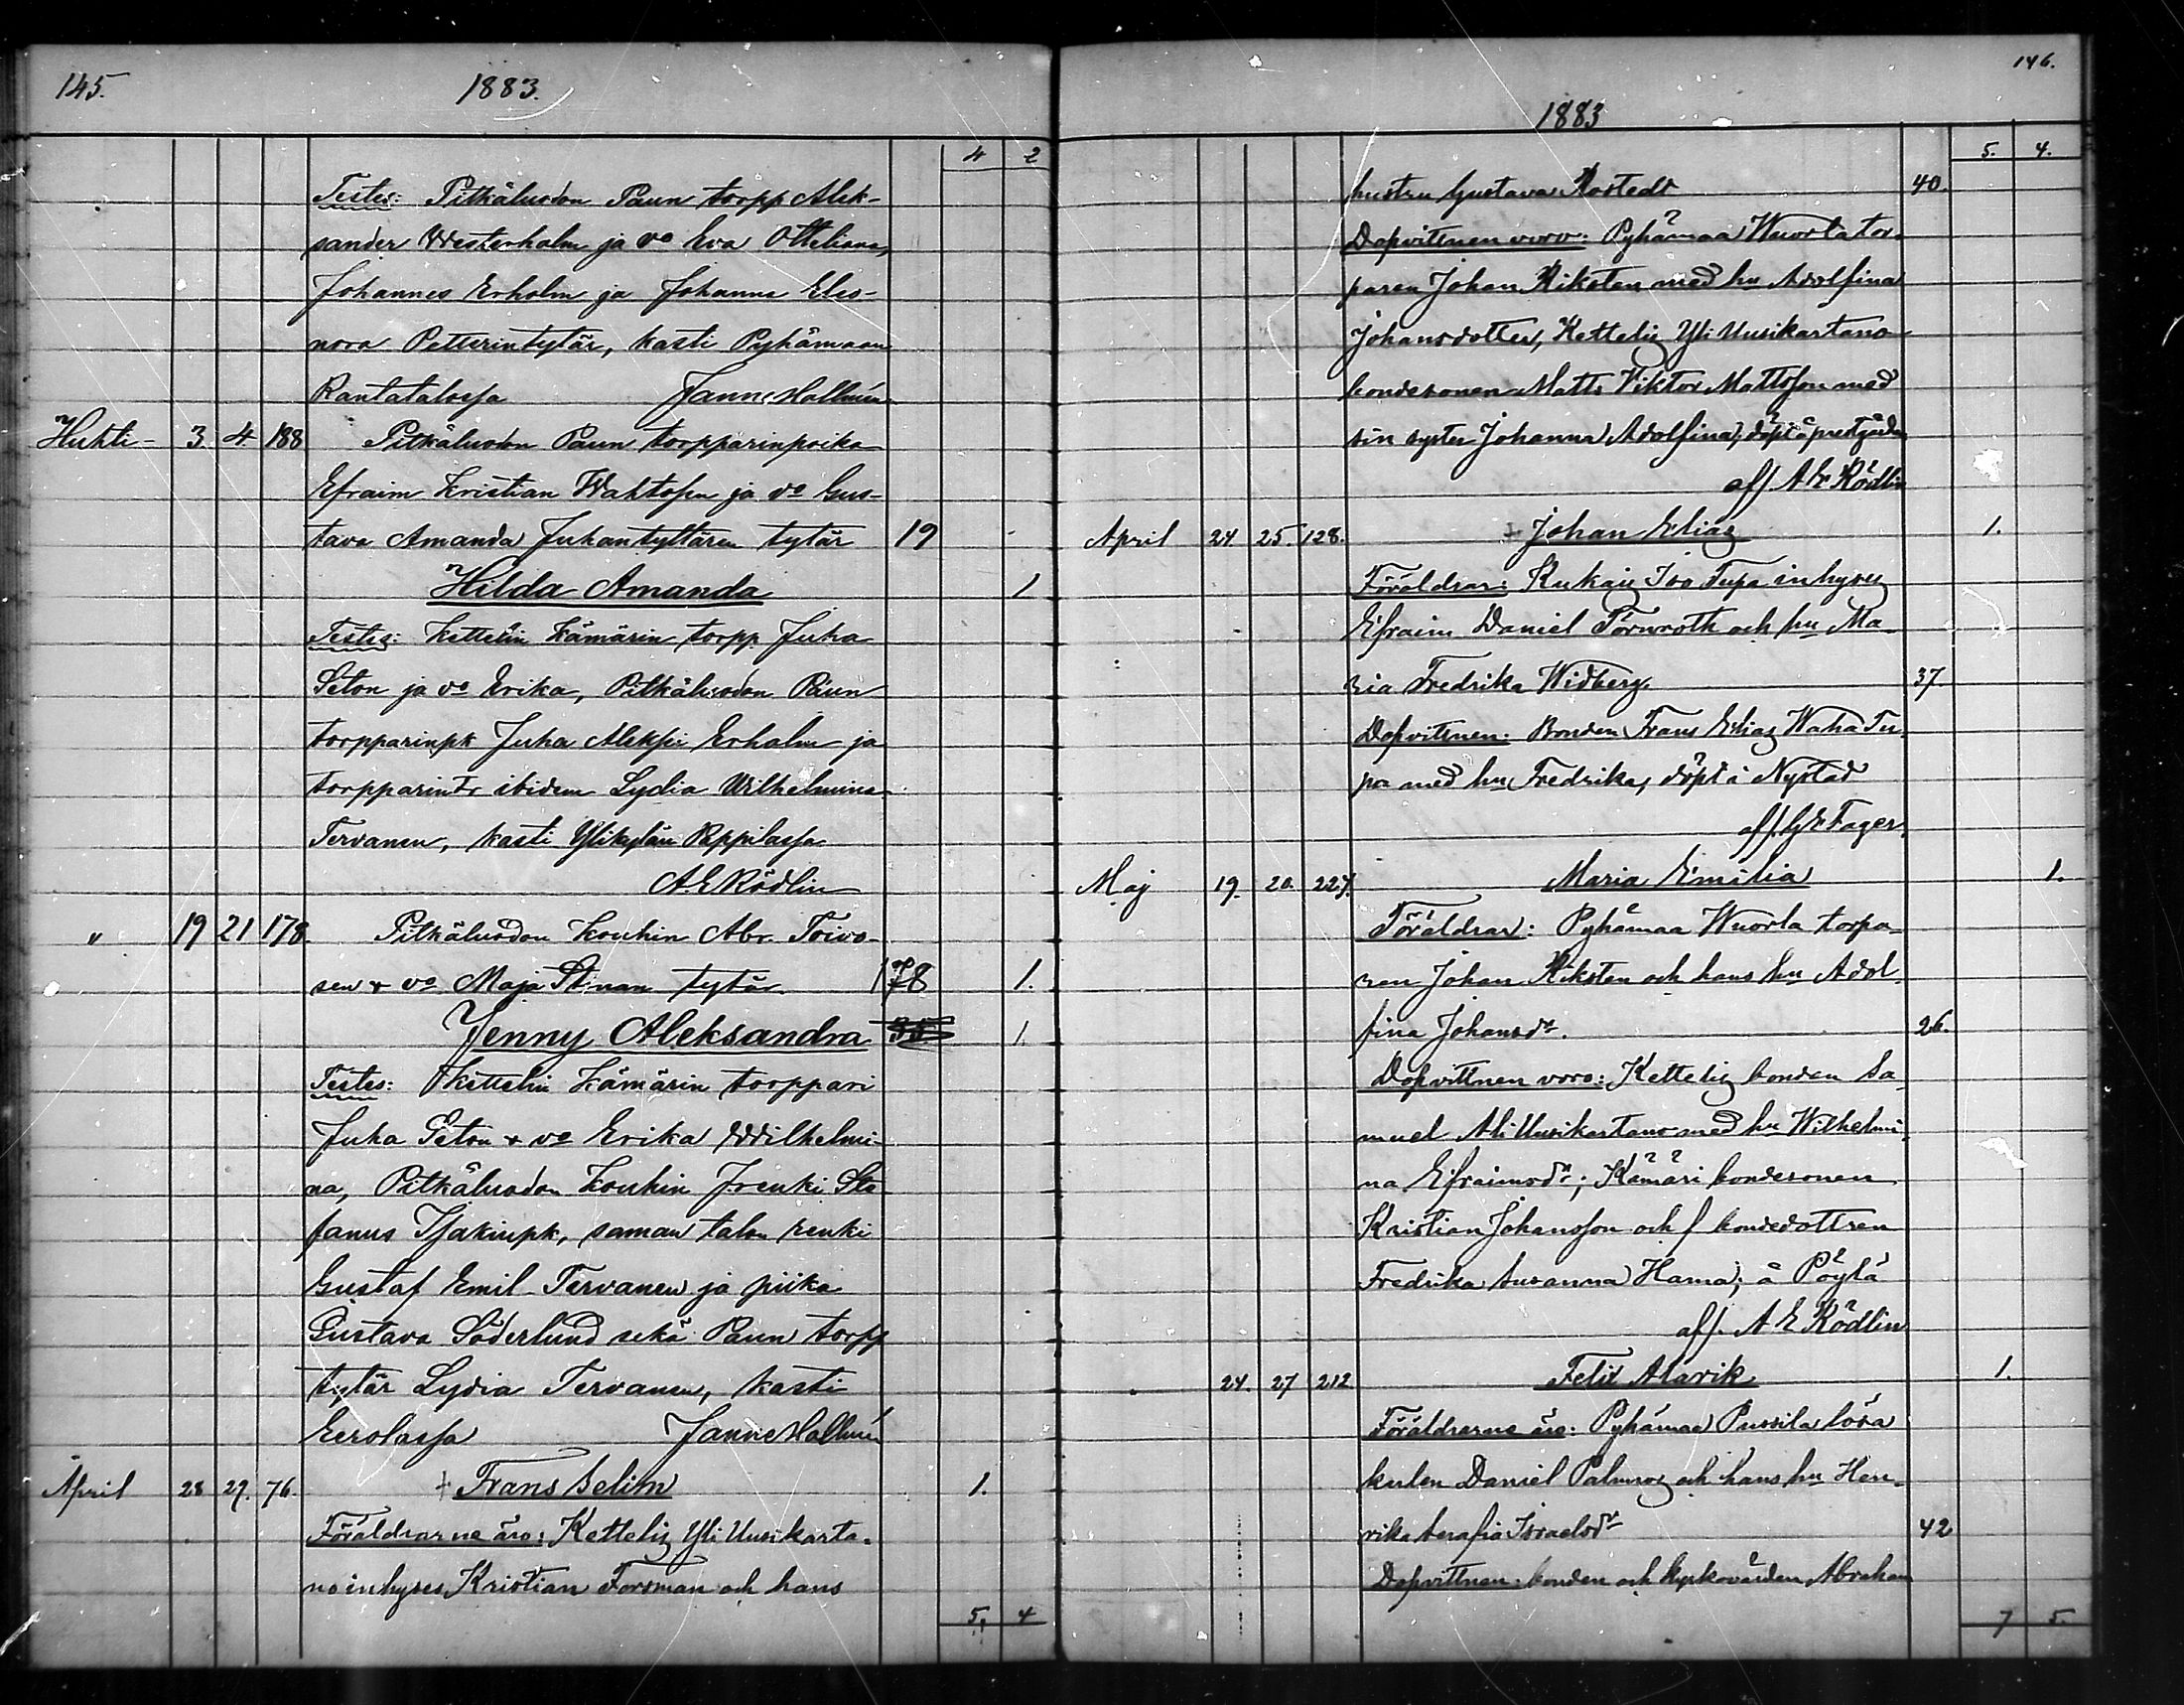 145.
1883.
4 2
Testes: Pitkäluodon Paun torpp. Alek-
sander Westerholm ja vo Eva Otteliana,
Johannes Erholm ja Johanna Eleo-
nora Petterintytär, kasti Pyhämaan
Rantatalossa Janne Hallmén
Huhti- 3. 4. 188 Pitkäluodon Paun torpparinpoika
Efraim Kristian Wahtosen ja vo Gus-
tava Amanda Juhantyttären tytär 19
Hilda Amanda 1
Testes: Kettelin Kämärin torpp. Juha
Seton ja vo Erika, Pitkäluodon Paun
torpparinpk Juha Aleksi Erholm ja
torpparintr ibidem Lydia Wilhelmina
Tervanen, kasti Ylikylän Pappilassa
A E Rödlin
" 19 21 178. Pitkäluodon Kouhin Abr. Toivo-
sen & vo Maja Stinan tytär 178 1.
Jenny Aleksandra 35 1.
Testes: Kettelin Kämärin torppari
Juha Seton & vo Erika Wilhelmi-
na, Pitkäluodon Kouhin renki Ste-
fanus Isakinpk, saman talon renki
Gustaf Emil Tervanen ja piika
Gustava Söderlund sekä Paun torpp
tytär Lydia Tervanen, kasti
Eerolassa Janne Hallmén
April 28 29. 76. + Frans Selim 1.
Föräldrarne äro: Kettelig Yli Uusikarta-
no inhyses Kristian Forsman och hans
5. 4
146.
1883
5. 4.
hustru Gustava Rostedt 40.
Dopvittnen voro: Pyhämaa Wuorla tor-
paren Johan Riksten med hu Adolfina
Johansdotter, Kettelig Yli Uusikartano
bondesonen Matts Viktor Mattsson med
sin syster Johanna Adolfina; döpt å prestgården
af/ A E Rödlin
April 24. 25. 128. + Johan Elias 1.
Föräldrar: Kukais Iso Tupa inhyses
Efraim Daniel Törnroth och hu Ma-
ria Fredrika Widberg. 37.
Dopvittnen: Bonden Frans Elias Waha Tu-
pa med hu Fredrika, döpt i Nystad
af/. G E Fager.
Maj 19. 20. 227. Maria Emilia 1.
Föräldrar: Pyhämaa Wuorla torpa-
ren Johan Riksten och hans hu Adol-
fina Johansdr. 26.
Dopvittnen voro: Kettelig bonden Sa-
muel Ali Uusikartano med hu Wilhelmi-
na Efraimsdr; Kämäri bondesonen
Kristian Johansson och f bondedottren
Fredrika Susanna Hama; å Pöylä
af/. A E Rödlin
" 24. 27 212. Felix Alarik 1.
Föräldrarne äro: Pyhämaa Pussila lösa
kulen Daniel Palmros och hans hu Hen-
rika Serafia Israelsdr 42
Dopvittnen: bonden och kyrkovärden Abraham
7 5.